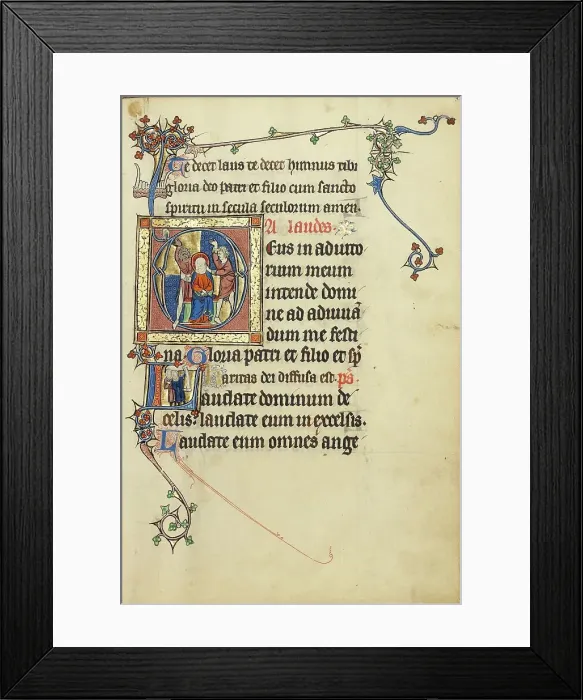 Te decet laus te decet himnus tibi
gloria deo patri et filio cum sancto
spiritu in secula seculorum amen.
A laudes.
Deus in aduito
rium meum
intende domi
ne ad adiuuā
dum me festi
na. Gloria patri et filio et sp̄
Caritas dei diffusa est. ps̄
Laudate dominum de
celis: laudate eum in excelsis.
Laudate eum omnes ange